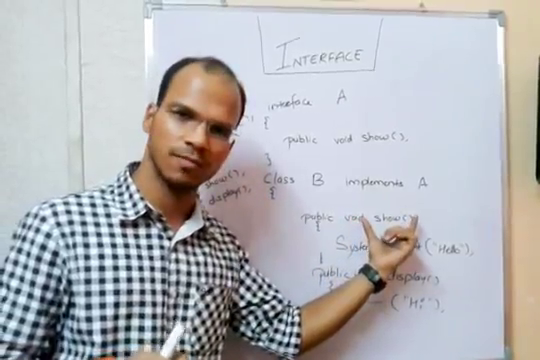 INTERFACE
interface A
{
public void show();
}
show();
display();
Class B implements A
{
public void show()
{
("Hello");
}
public display()
{
("Hi");